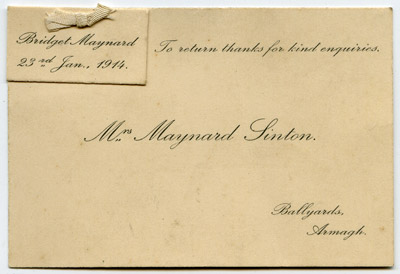 Bridget Maynard
23rd Jan., 1914.
To return thanks for kind enquiries.
Mrs Maynard Sinton.
Ballyards,
Armagh.